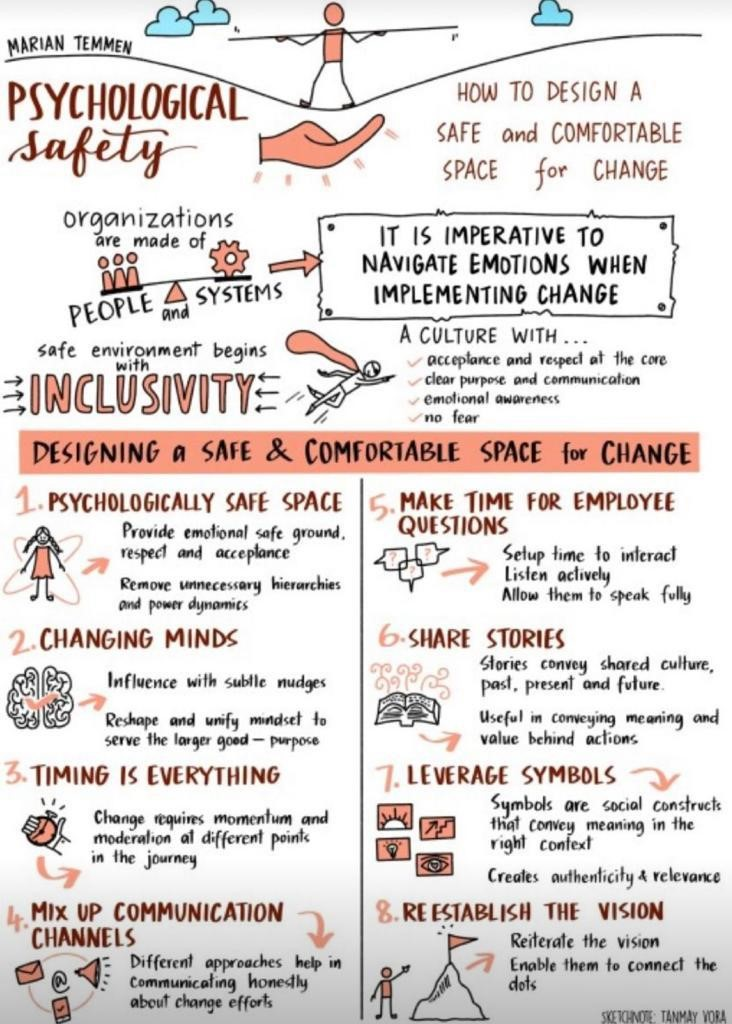 MARIAN TEMMEN
PSYCHOLOGICAL
safety
HOW TO DESIGN A
SAFE and COMFORTABLE
SPACE for CHANGE
organizations
are made of
PEOPLE and SYSTEMS
IT IS IMPERATIVE TO
NAVIGATE EMOTIONS WHEN
IMPLEMENTING CHANGE
safe environment begins
with
INCLUSIVITY
A CULTURE WITH...
acceptance and respect at the core
clear purpose and communication
emotional awareness
no fear
DESIGNING a SAFE & COMFORTABLE SPACE for CHANGE
1. PSYCHOLOGICALLY SAFE SPACE
Provide emotional safe ground,
respect and acceptance
Remove unnecessary hierarchies
and power dynamics
2. CHANGING MINDS
Influence with subtle nudges
Reshape and unify mindset to
serve the larger good – purpose
3. TIMING IS EVERYTHING
Change requires momentum and
moderation at different points
in the journey
4. MIX UP COMMUNICATION
CHANNELS
@
Different approaches help in
communicating honestly
about change efforts
5. MAKE TIME FOR EMPLOYEE
QUESTIONS
? ? ?
Setup time to interact
Listen actively
Allow them to speak fully
6. SHARE STORIES
Stories convey shared culture,
past, present and future.
Useful in conveying meaning and
value behind actions
7. LEVERAGE SYMBOLS
Symbols are social constructs
that convey meaning in the
right context
Creates authenticity & relevance
8. REESTABLISH THE VISION
Reiterate the vision
Enable them to connect the
dots
SKETCHNOTE: TANMAY VORA